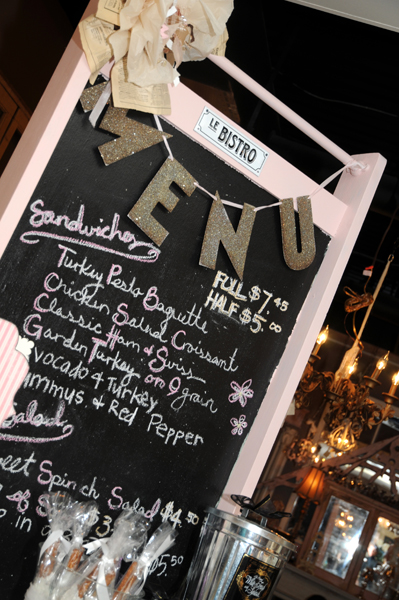 LE BISTRO
MENU
Sandwiches
FULL $7.45
HALF $5.00
Turkey Pesto Baguette
Chicken Salad Croissant
Classic Ham & Swiss
Garden Turkey on 9 grain
vocado & Turkey
ummus & Red Pepper
Salad
weet Spinch Salad $4.50
of S $3
p in a
$5.50